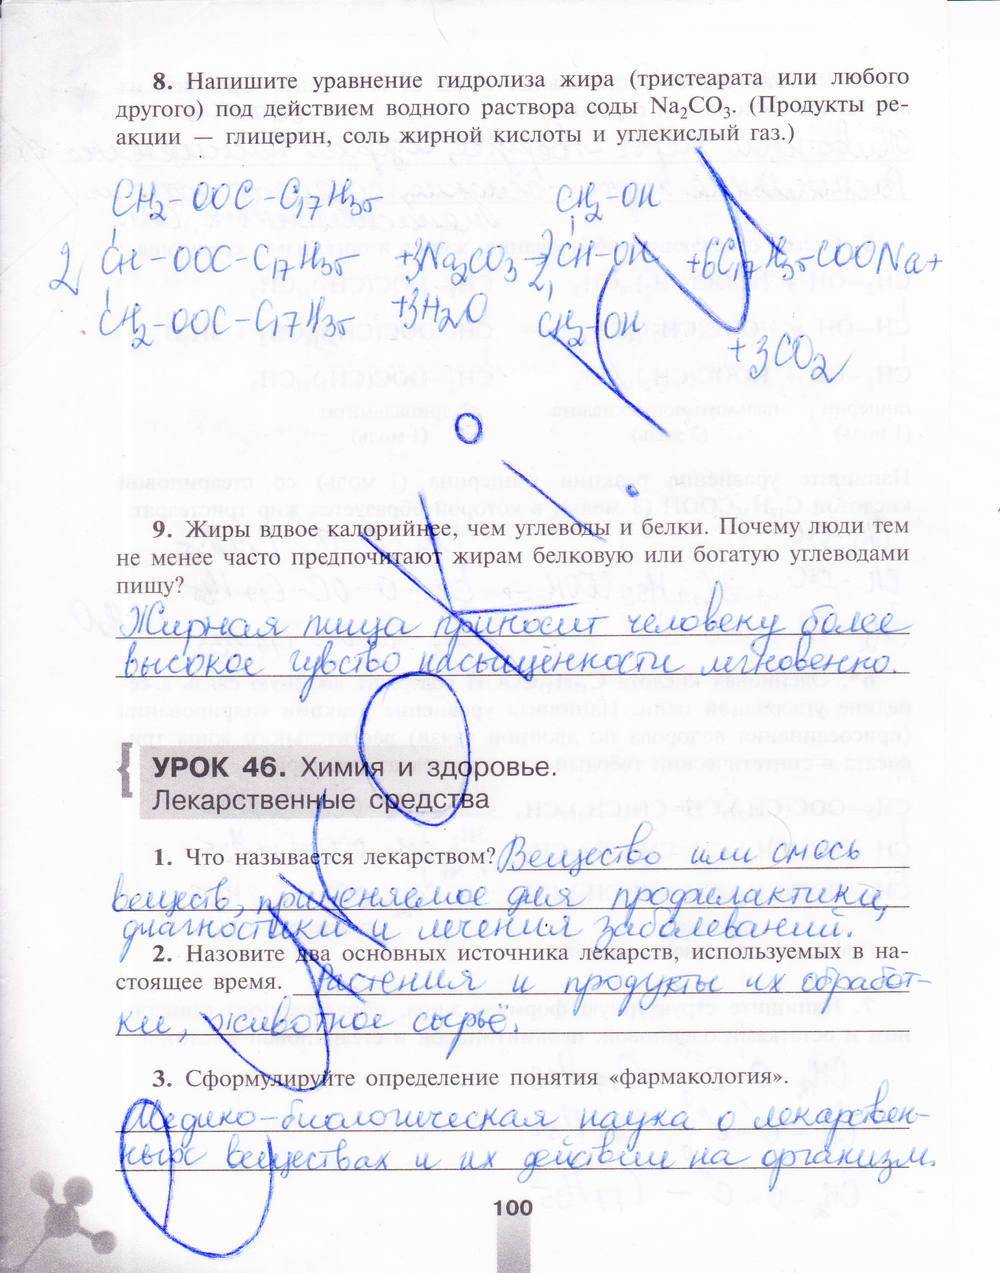 8. Напишите уравнение гидролиза жира (тристеарата или любого
другого) под действием водного раствора соды Na₂CO₃. (Продукты ре-
акции — глицерин, соль жирной кислоты и углекислый газ.)
CH₂-OOC-C₁₇H₃₅ CH₂-OH
2 CH-OOC-C₁₇H₃₅ +3Na₂CO₃→2 CH-OH +6C₁₇H₃₅COONa+
CH₂-OOC-C₁₇H₃₅ +3H₂O CH₂-OH +3CO₂
9. Жиры вдвое калорийнее, чем углеводы и белки. Почему люди тем
не менее часто предпочитают жирам белковую или богатую углеводами
пищу?
Жирная пища приносит человеку более
высокое чувство насыщённости мгновенно.
УРОК 46. Химия и здоровье.
Лекарственные средства
1. Что называется лекарством? Вещество или смось
веществ, применяемое для профилактики,
диагностики и лечения заболеваний.
2. Назовите два основных источника лекарств, используемых в на-
стоящее время. Растения и продукты их обработ-
ки, животное сырьё.
3. Сформулируйте определение понятия «фармакология».
Медико-биологическая наука о лекарствен-
ных веществах и их действии на организм.
100